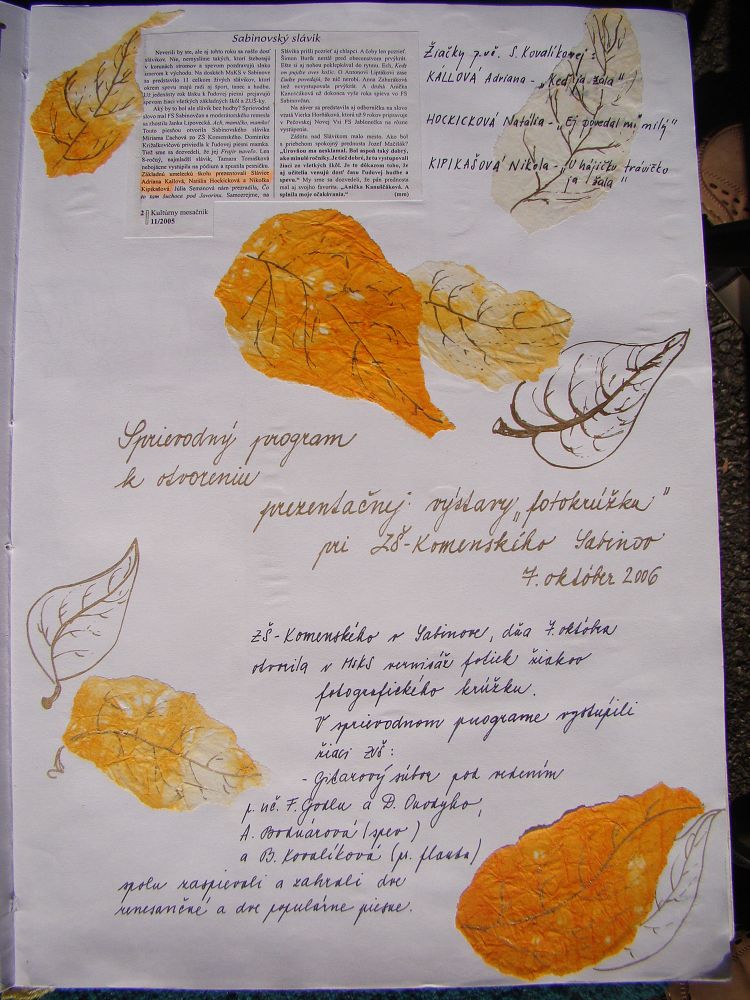 Sabinovský slávik
Neverili by ste, ale aj tohto roku sa našlo dosť
slávikov. Nie, nemyslíme takých, ktorí štebotajú
v korunách stromov a spevom pozdravujú slnko
smerom k východu. Na doskách MsKS v Sabinove
sa predstavilo 11 celkom živých slávikov, ktorí
okrem spevu majú radi aj šport, tanec a hudbu.
Už jedenásty rok lásku k ľudovej piesni prejavujú
spevom žiaci všetkých základných škôl a ZUŠ-ky.
Aký by to bol ale slávik bez hudby? Sprievodné
slovo mal FS Sabinovčan a moderátorského remesla
sa zhostila Janka Lipovecká. Ach, mamičko, mamko!
Touto piesňou otvorila Sabinovského slávika
Miriama Ľachová zo ZŠ Komenského. Dominiku
Križalkovičovú priviedli k ľudovej piesni mamka.
Tiež sme sa dozvedeli, že jej Frajir navelo. Len
8-ročný, najmladší slávik, Tamara Tomašková
nebojácne vystúpila na pódium a spustila pesničku.
Základnú umeleckú školu prezentovali Slávice
Adriana Kallová, Natália Hockicková a Nikolka
Kipikašová. Júlia Semanová nám prezradila, Čo
to tam šuchoce pod javorinu. Samozrejme, na
Slávika prišli pozrieť aj chlapci. A čoby len pozrieť.
Šimon Burik nestál pred obecenstvom prvýkrát.
Ešte si aj nohou poklepkával do rytmu. Ech, Keďs
on pojdze ores kolic. O Antonovi Liptákovi zase
Ľudze povedajú, že nič nerobí. Anna Zahuráková
tiež nevystupovala prvýkrát. A druhá Anička
Kanuščáková už dokonca vyše roka spieva vo FS
Sabinovčan.
Na záver sa predstavila aj odborníčka na slovo
vzatá Vierka Horňáková, ktorá už 9 rokov pripravuje
v Pečovskej Novej Vsi FS Jabloněčka na rôzne
vystúpenia.
Zdôžte nad Slávikom malo mesto. Ako bol
s priebehom spokojný prednosta Jozef Mačišák?
"Úravňou me nesklamal. Bol aspoň taký dobrý,
ako minulé ročníky. Je tiež dobré, že tu vystupovali
žiaci zo všetkých škôl. Je to dôkazom toho, že
aj učitelia venujú dosť času ľudovej hudbe a
spevu." My sme sa dozvedeli, že pán prednosta
mal aj svojho favorita. "Anička Kanuščáková. A
splnila moje očakávania." (mm)
2 Kultúrny mesačník
11/2005
Žiačky p. uč. S. Kovalíkovej:
KALLOVÁ Adriana - „Keď ja žala"
HOCKICKOVÁ Natália - „Ej povedal mi milý"
KIPIKAŠOVÁ Nikola - „V hájičku trávičko
ja žala"
Sprievodný program
k otvoreniu
prezentačnej výstavy „fotokrúžku"
pri ZŠ-Komenského Sabinov
7. október 2006
ZŠ-Komenského v Sabinove, dňa 7. októbra
otvorila v MsKS vernisáž fotiek žiakov
fotografického krúžku.
V sprievodnom programe vystúpili
žiaci ZUŠ:
- Gitarový súbor pod vedením
p. uč. F. Godlu a D. Onodyho,
A. Bodnárová (spev)
a B. Kovalíková (p. flauta)
spolu zaspievali a zahrali dve
renesančné a dve populárne piesne.